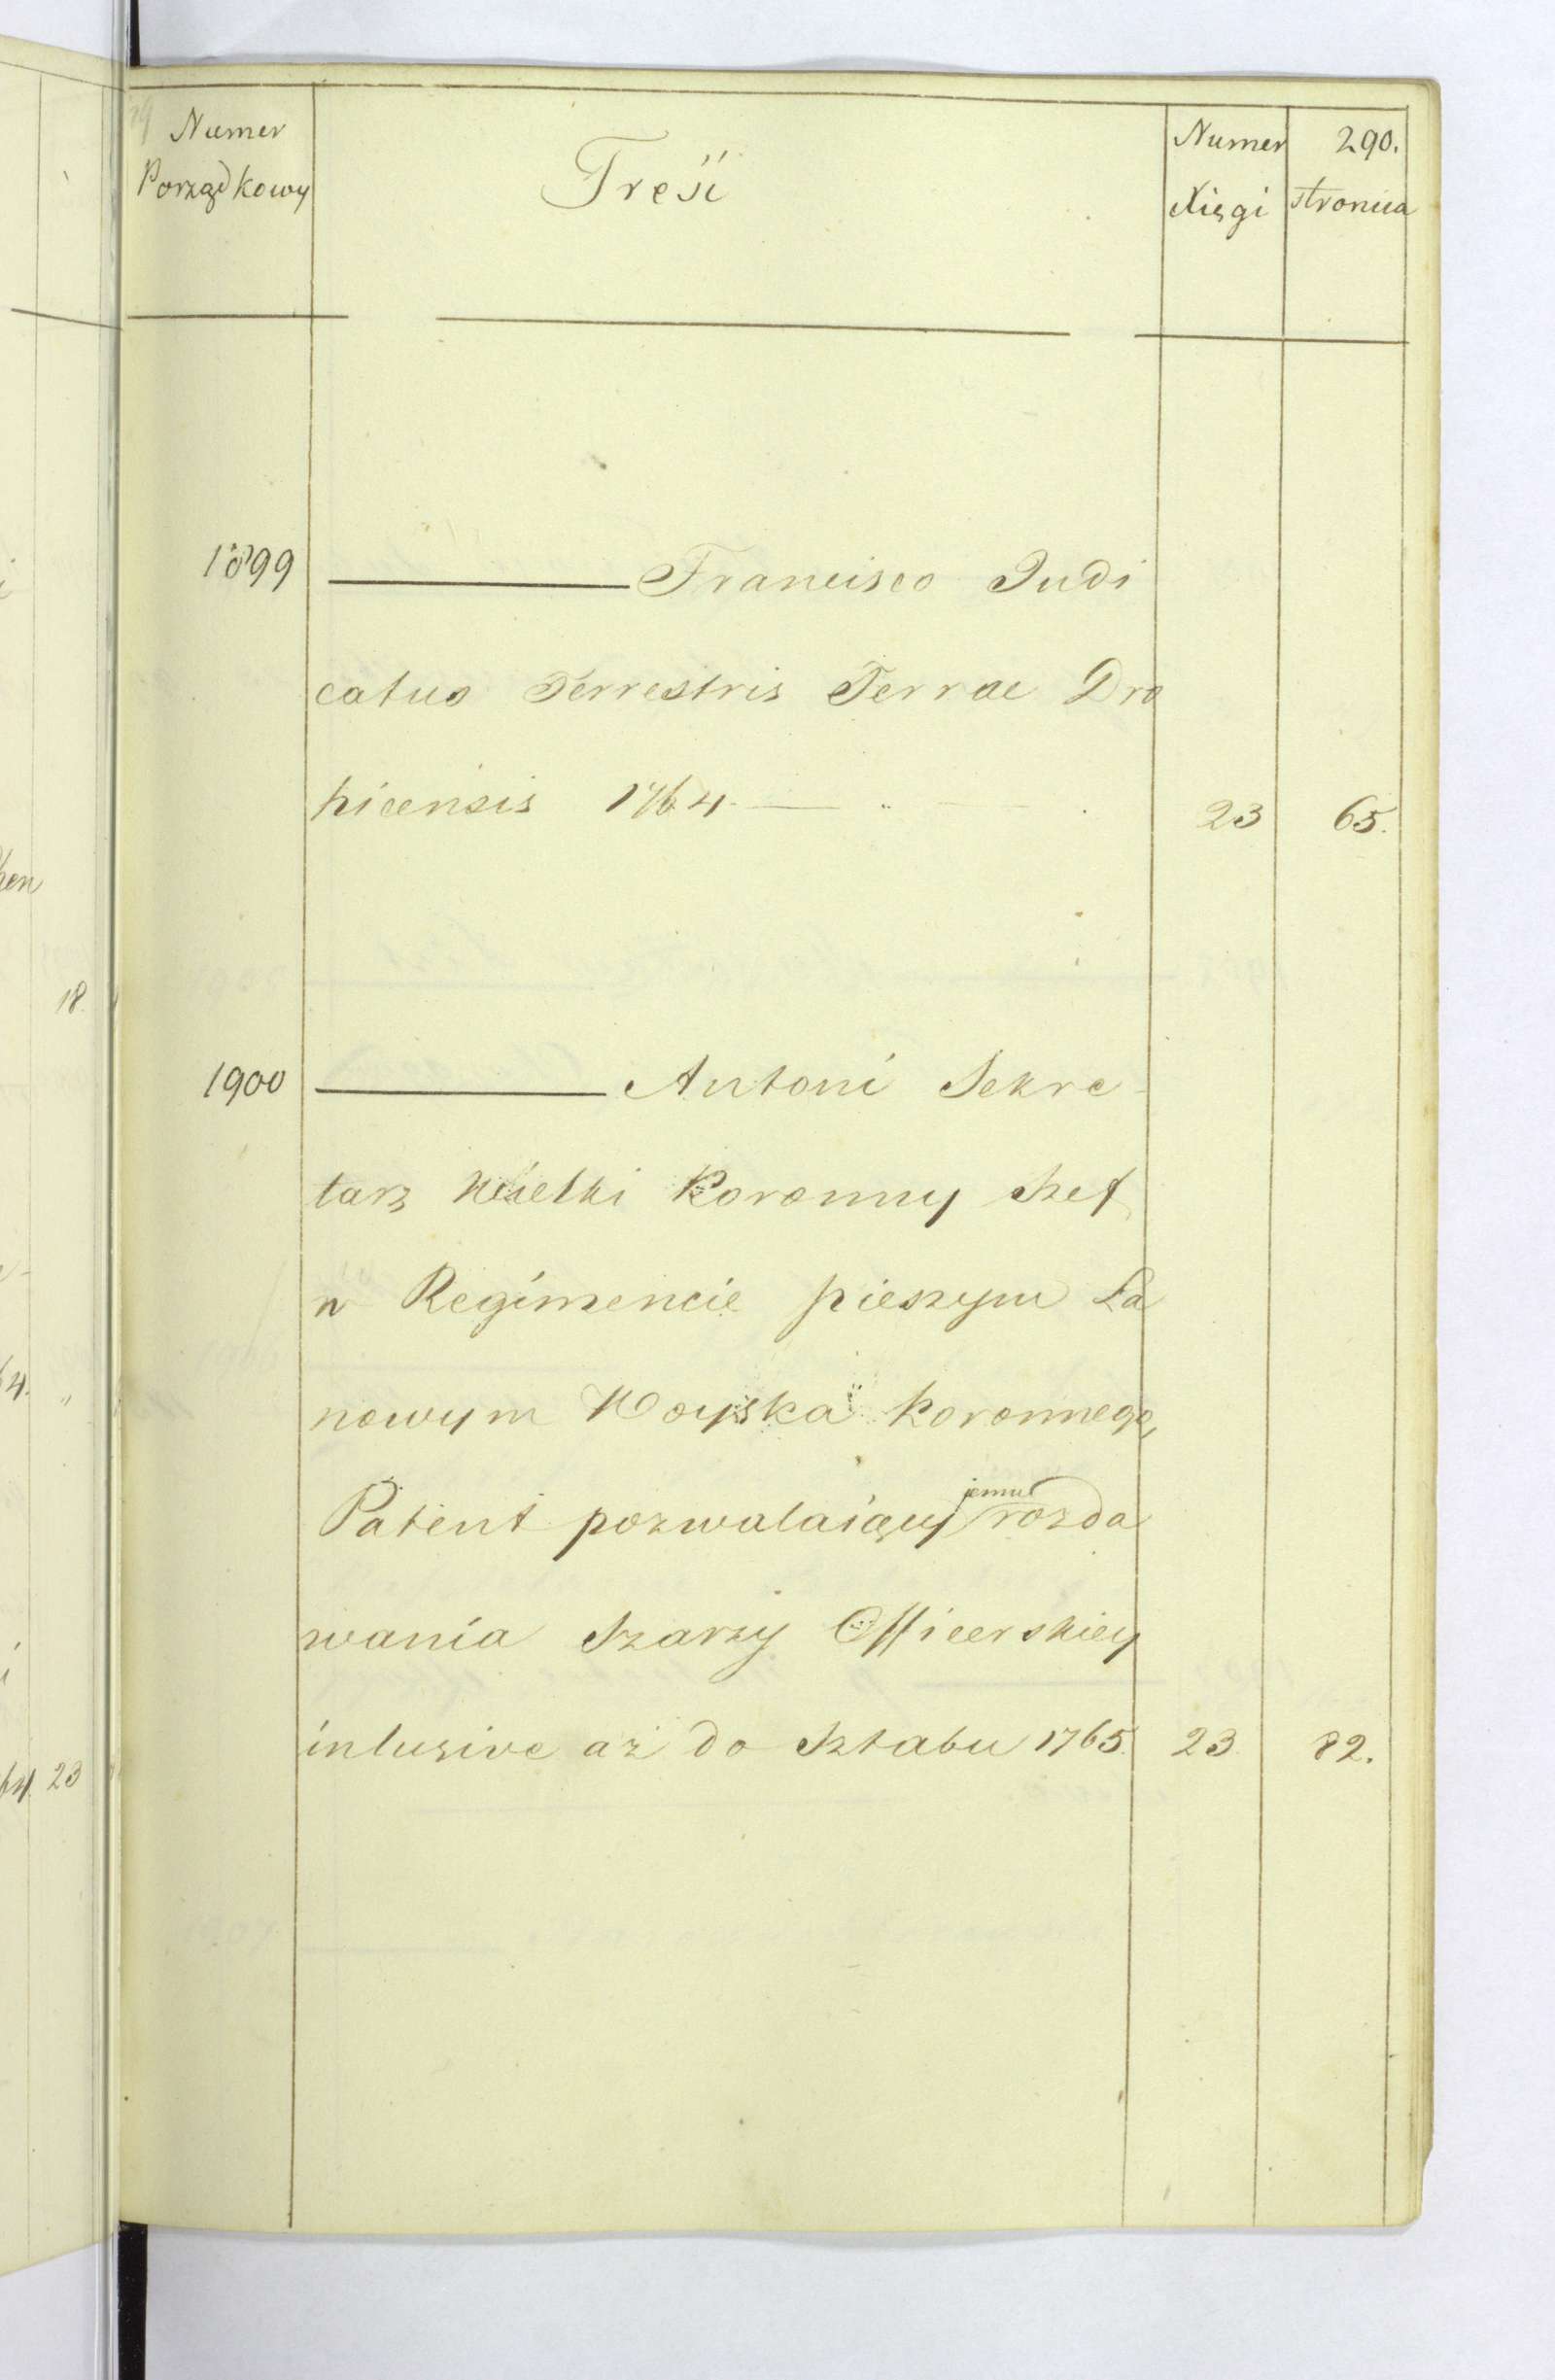 Numer Porządkowy
Treść
Numer Xięgi
290.
stronica
1899 ——— Francisco Judi
catus Terrestris Terrae Dro
hicensis 1764. — 23 65.
1900 ——— Antoni Sekre-
tarz Wielki Koronny Szef
w Regimencie pieszym La
nowym Woyska Koronnego,
Patent pozwalaiący jemu rozda
wania Szarzy Officerskiey
inlusive aż do Sztabu 1765. 23 82.
18.
23